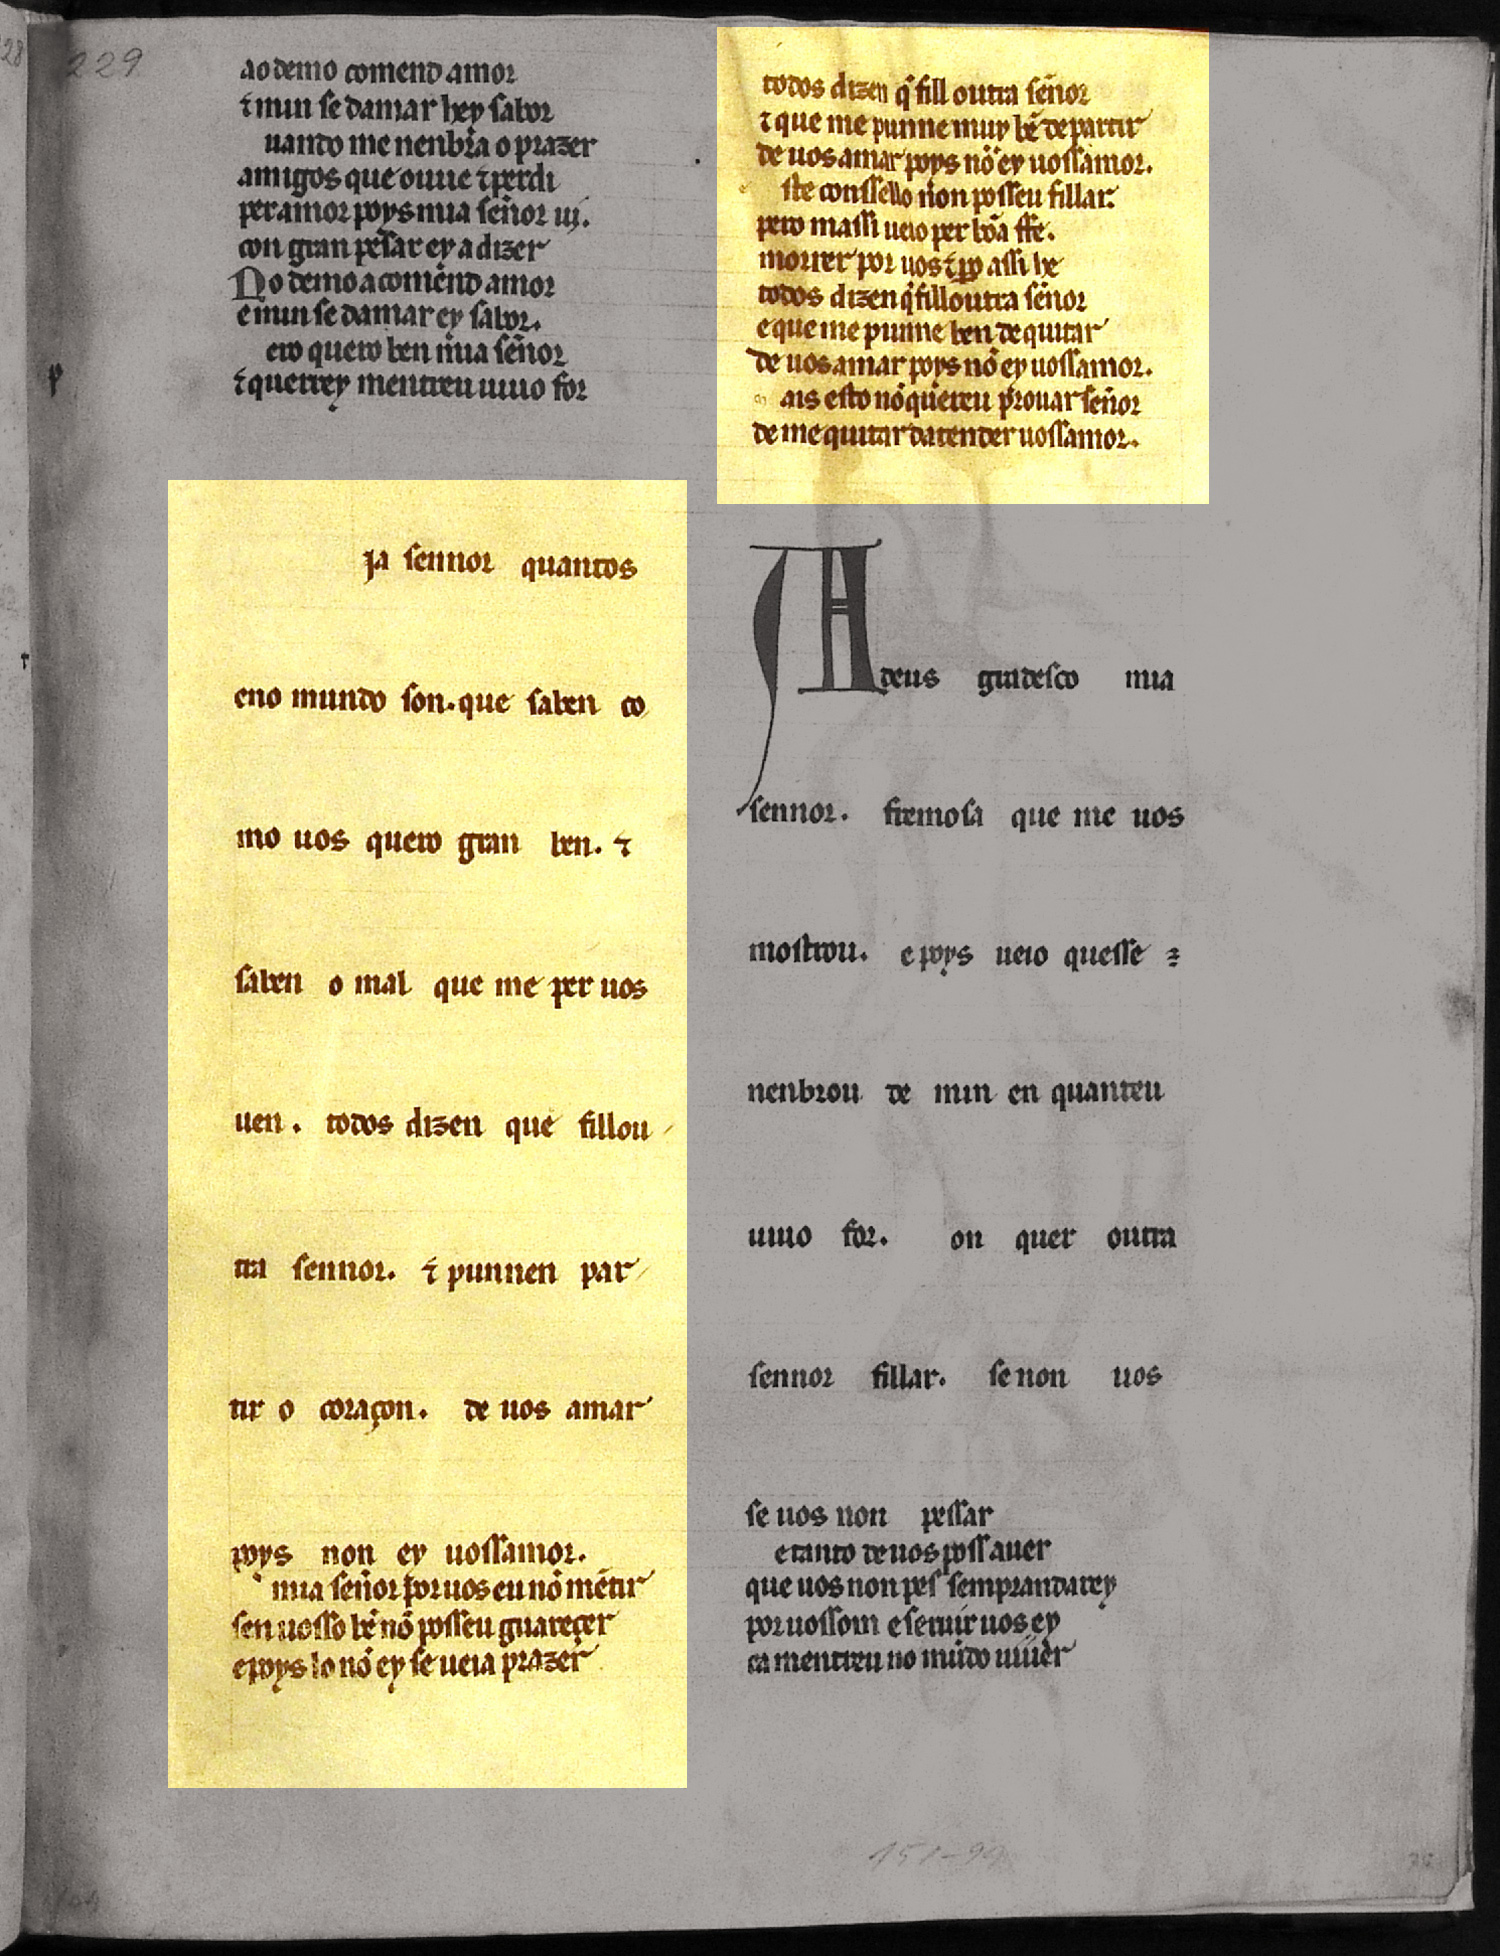 229
ao demo comend amor
⁊ mun se damar hey sabor
uando me nenbra o prazer
amigos que ouue ⁊ perdi
per amor poys mia señor ui.
con gran pesar ey a dizer
No demo acomend amor
e mun se damar ey sabor.
ero quero ben mia señor
⁊ querrey mentreu uiuo for
ja sennor quantos
eno mundo son. que saben co
mo uos quero gran ben. ⁊
saben o mal que me per uos
uen. todos dizen que fillou
tra sennor. ⁊ punnen par
tir o coraçon. de uos amar
poys non ey uossamor.
mia señor por uos eu nō mētir
sen uosso bē nō posseu guareçer
e poys lo nō ey se ueia prazer
todos dizen q̄ fill outra señor
⁊ que me punne muy bē departir
de uos amar poys nō ey uossamor.
ste conssello non posseu fillar.
pero massi ueio per bōa ffe.
morrer por uos ⁊ p̄o assi he
todos dizen q̄ fill outra señor
e que me punne ben de quitar
de uos amar poys nō ey uossamor.
ais esto nō quereu prouar señor
de me quitar datender uossamor.
A deus gradesco mia
sennor. fremosa que me uos
mostrou. e poys ueio quesse
nenbrou de min en quanteu
uiuo for. on quer outra
sennor fillar. se non uos
se uos non pessar
e tanto de uos poss auer
que uos non pes semprandarey
por uossom e seruir uos ey
ca mentreu no mūdo uiuer
151-99